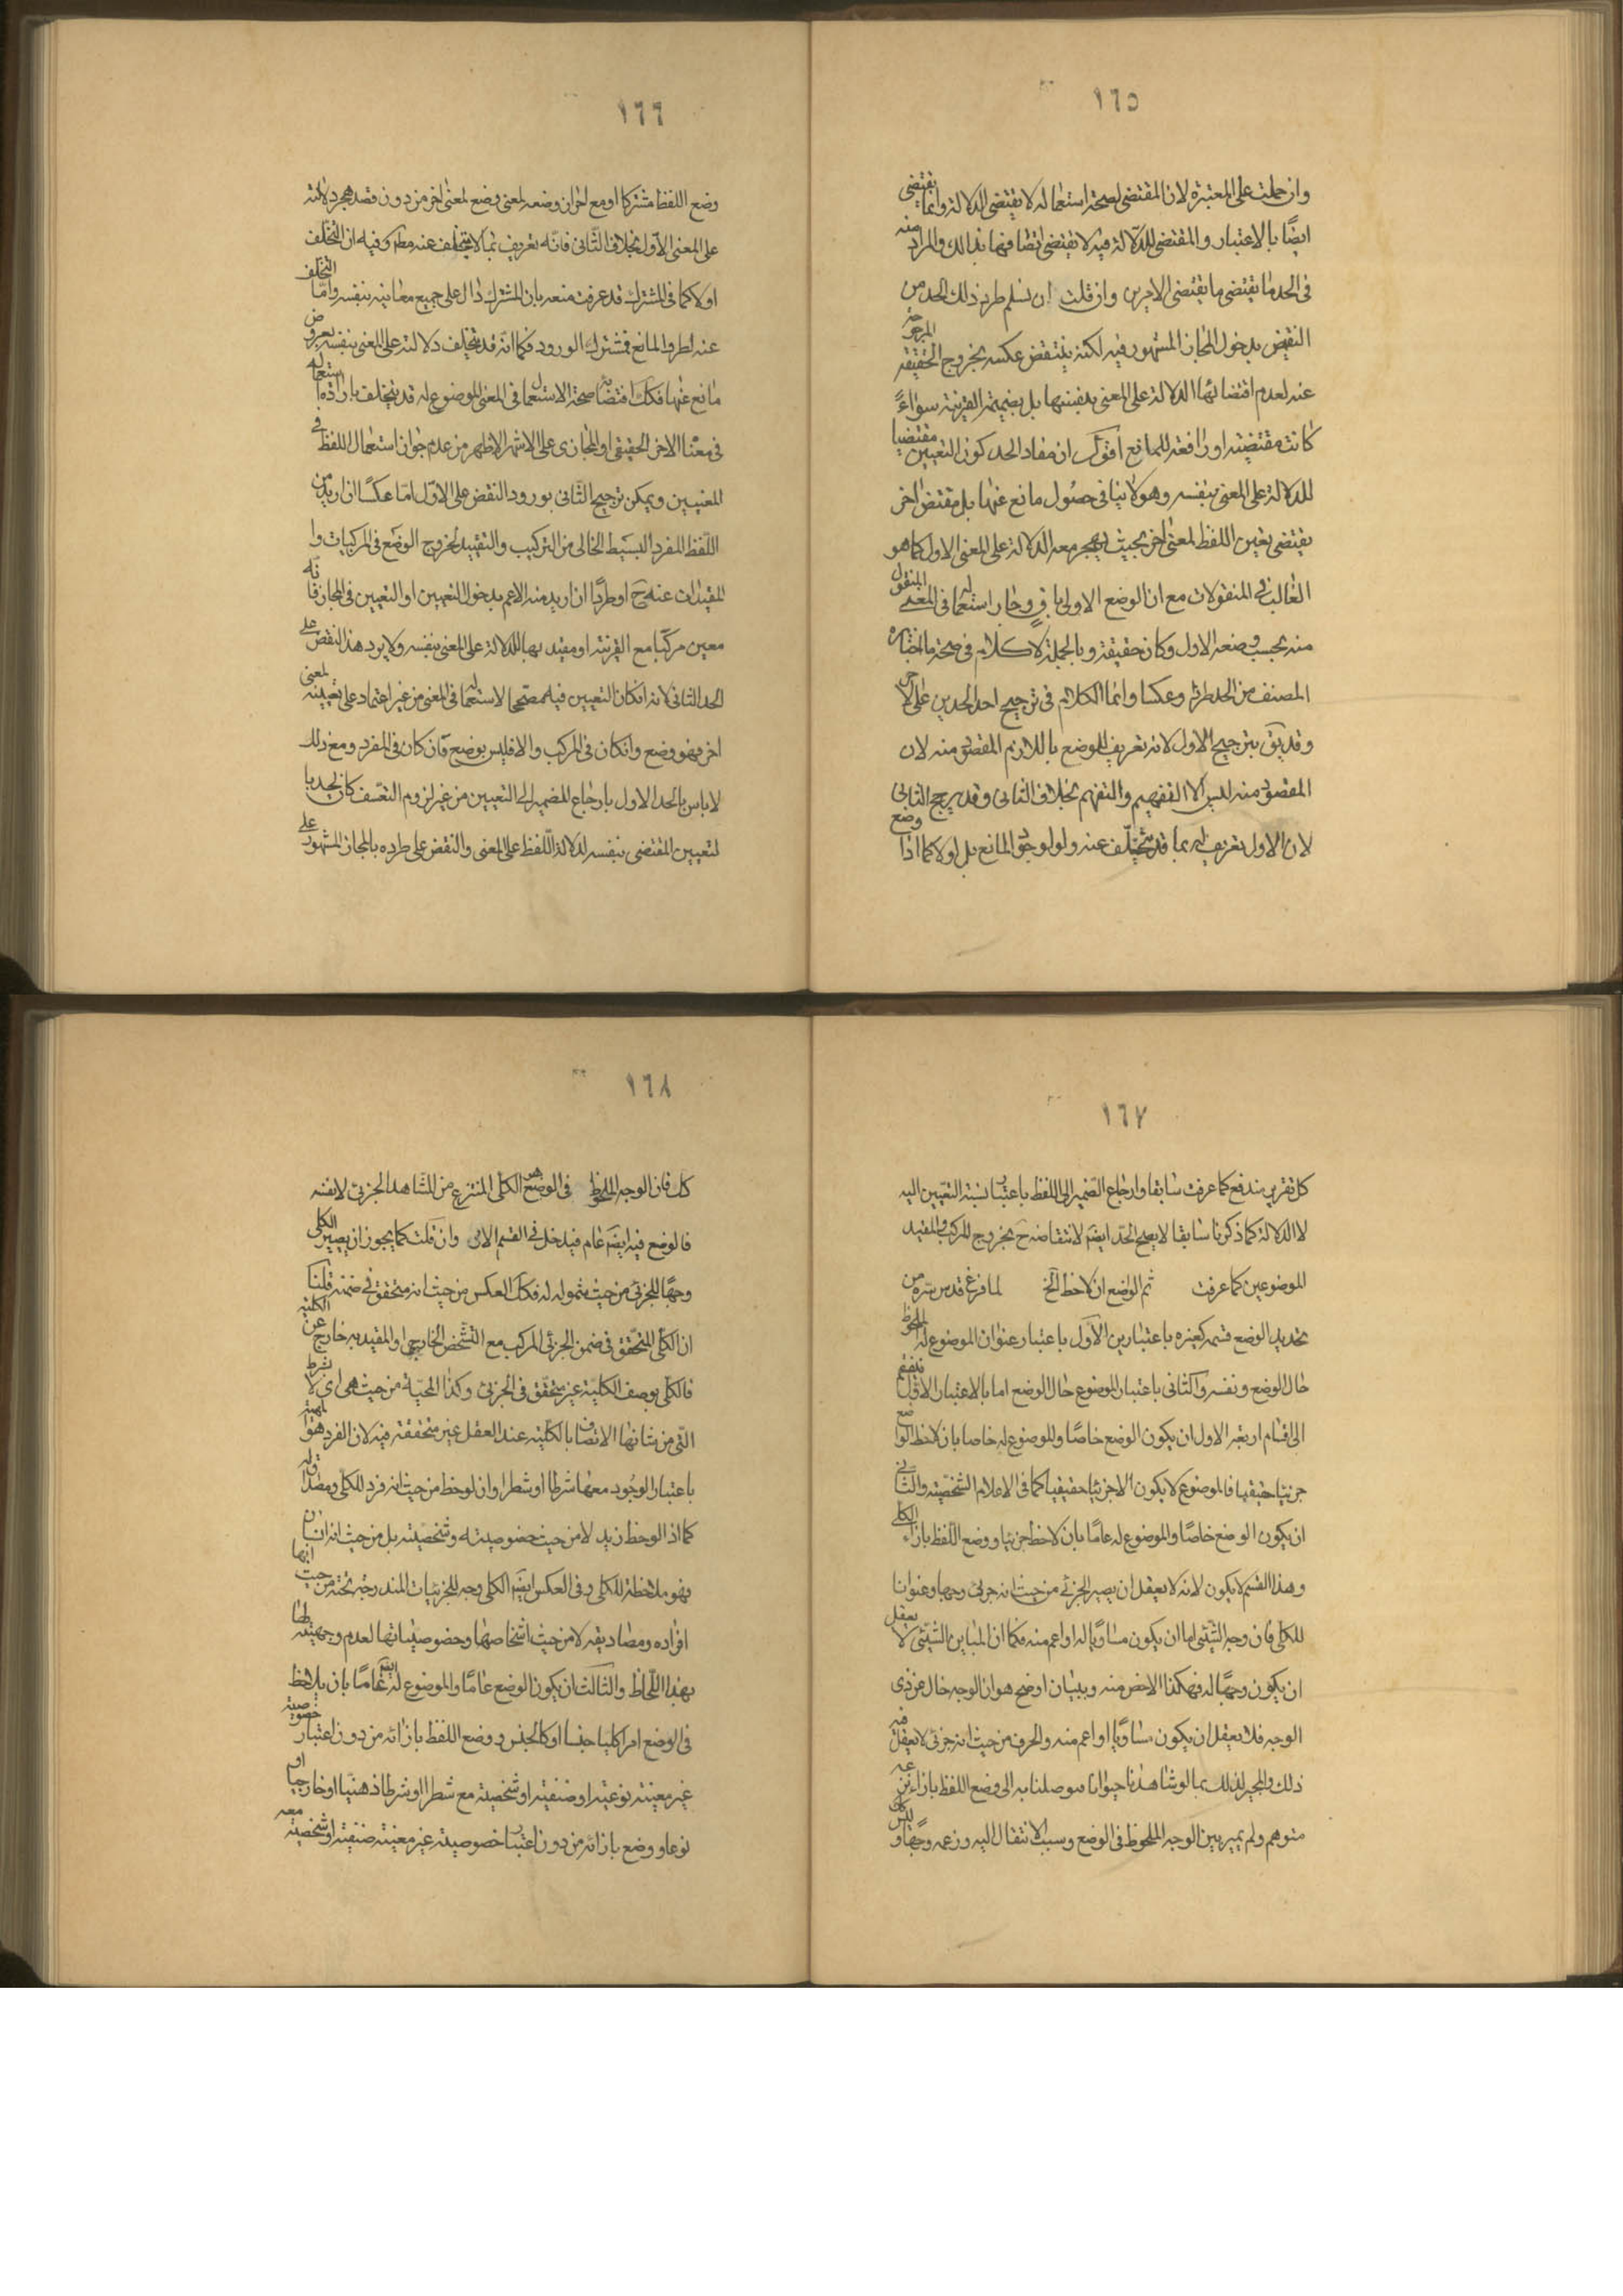 ١٦٥
وان حملت على المعتبرة لان المقتضى لصحة استعماله لا يقتضى الدلالة وانما يقتضى
ايضًا بالاعتبار والمقتضى للدلالة فيه لا يقتضى اتصافها بذالك والمراد منه
فى الحد ما يقتضى ما يقتضى الاخرين وان قلت ان نسلم طرد ذلك الحد من
النقض بدخول المجاز المشهور فيه لكنه ينتقض عكسه بخروج الحقيقة المرجوحة
عنه لعدم اقتضائها الدلالة على المعنى بنفسها بل بضميمة القرينة سواءً
كانت مقتضية او رافعة للمانع اقول ان مفاد الحد كون التعيين مقتضيا
للدلالة على المعنى بنفسه وهو لا ينافى حصول مانع عنها بل مقتض اخر
يقتضى تعين اللفظ لمعنى اخر بحيث يهجر معه الدلالة على المعنى الاول كما هو
الغالب فى المنقولات مع ان الوضع الاولى باق وجاز استعماله فى المعنى المنقول
منه بحسب وضعه الاول وكان حقيقة وبالجملة لا كلام فى صحة ما اختاره
المصنف من الحد طردا وعكسا وانما الكلام فى ترجيح احد الحدين على الاخر
وقد يق بترجيح الاول لانه تعريف للوضع باللازم المقصود منه لان
المقصود منه ليس الا التفهيم والتفهم بخلاف الثانى وقد يرجح الثانى
لان الاول تعريف له بما قد يتخلف عنه ولو لوجود المانع بل اولا كما اذا وضع
١٦٦
وضع اللفظ مشتركا او مع اخر ان وضعه لمعنى وضع لمعنى اخر من دون قصد هجر دلالته
على المعنى الاول بخلاف الثانى فانه تعريف بما لا يتخلف عنه مطم وفيه ان التخلف
اولا كما فى المشترك قد عرفت منعه بان المشترك دال على جميع معانيه بنفسه واما التخلف
عنه لطرو المانع فمشترك الورود فكما انه قد يتخلف دلالته على المعنى بنفسه بعروض
مانع عنها فكك اقتضائه صحة الاستعمال فى المعنى الموضوع له قد يتخلف بارادة استعماله
فى معناه الاخر الحقيقى او المجازى على الاشهر الاظهر من عدم جواز استعمال اللفظ فى
المعنيين ويمكن ترجيح الثانى بورود النقض على الاول اما عكسًا ان اريد من
اللفظ المفرد البسيط الخالى من التركيب والتقييد لخروج الوضع فى المركبات وا
لمقيدات عنه ح او طردًا ان اريد منه الاعم بدخول التعيين او التعيين فى المجاز فانه
معين مركبا مع القرينة او مقيد بها للدلالة على المعنى بنفسه ولا يرد هذا النقض على
الحد الثانى لانه ان كان التعيين فيه مصححا لاستعماله فى المعنى من غير اعتماد على تعيينه لمعنى
اخر فهو وضع وان كان فى المركب والا فليس بوضع وان كان فى المفرد ومع ذلك
لا باس بالحد الاول بارجاع الضمير الى التعيين من غير لزوم التعسف كان يحد با
لتعيين المقتضى بنفسه لدلالة اللفظ على المعنى والنقض على طرده بالمجاز المشهور على
١٦٧
كل تقرير يندفع كما عرفت سابقا وارجاع الضمير الى اللفظ باعتبار نسبة التعيين اليه
لا الدلالة كما ذكرنا سابقا لا يصح الحد ايضم لانتقاضه ح بخروج المركب والمقيد
الموضوعين كما عرفت ثم الواضع ان لاحظ الخ لما فرغ قدس سره من
تحديد الوضع قسمه كغيره باعتبارين الاول باعتبار عنوان الموضوع له الملحوظ
حال الوضع ونفسه والثانى باعتبار الموضوع حال الوضع اما بالاعتبار الاول ينقسم
الى اقسام اربعة الاول ان يكون الوضع خاصًا والموضوع له خاصا بان لاحظ الواضع
جزئيا حقيقيا فالموضوع لا يكون الا جزئيا حقيقيا كما فى الاعلام الشخصية والثانى
ان يكون الوضع خاصًا والموضوع له عامًا بان لاحظ جزئيا ووضع اللفظ بازاء الكلى
وهذا القسم لا يكون لانه لا يعقل ان يصير الجزئى من حيث انه جزئى وجها وعنوانا
للكلى فان وجه الشئى اما ان يكون مساويًا له او اعم منه فكما ان المباين الشئى لا يعقل
ان يكون وجهًا له فهكذا الاخص منه وببيان اوضح هو ان الوجه خال عن ذى
الوجه فلا يعقل ان يكون مساويا او اعم منه والجزئى من حيث انه جزئى لا يعقل فيه
ذلك والمجيز لذلك بما لو شاهدنا حيوانا بوصلنا به الى وضع اللفظ بازاء نوعه
متوهم ولم يميز بين الوجه الملحوظ فى الوضع وسبب الانتقال اليه وزعمه وجهًا وليس
١٦٨
كك فان الوجه الملحوظ فى الوضع هو الكلى المنتزع من المشاهد الجزئى لا نفسه
فالوضع فيه ايضم عام فيدخل فى القسم الاتى وان قلت كما يجوز ان يصير الكلى
وجهًا للجزئى من حيث شموله له فكك العكس من حيث انه متحقق فى ضمنه قلنا
ان الكلى المتحقق فى ضمن الجزئى المركب مع التشخص الخارجى او المقيد به خارج عن الكلية
فالكلى بوصف الكلية غير متحقق فى الجزئى وكذا المهية من حيث هى اى لا بشرط
التى من شانها الاتصاف بالكلية عند العقل غير متحققة فيه لان الفرد هو المهية
باعتبار الوجود معها شرطا او شطرا وان لوحظ من حيث انه فرد للكلى ومصداق له
كما اذا لوحظ زيد لا من حيث خصوصيته وشخصيته بل من حيث انه انسان
فهو ملاحظة للكلى وفى العكس ايضم الكلى وجه للجزئيات المندرجة تحته من حيث انها
افراده ومصاديقه لا من حيث اشخاصها وخصوصياتها لعدم وجهيته لها
بهذا اللحاظ والثالث ان يكون الوضع عامًا والموضوع له ايضم عامًا بان يلاحظ
فى الوضع امرا كليا جنسا او كالجنس ووضع اللفظ بازائه من دون اعتبار خصوصية
غير معينة نوعية او صنفية او شخصية مع شطرا او شرطا ذهنيا او خارجيا او
نوعا ووضع بازائه من دون اعتبار خصوصية غير معينة صنفية او شخصية معه